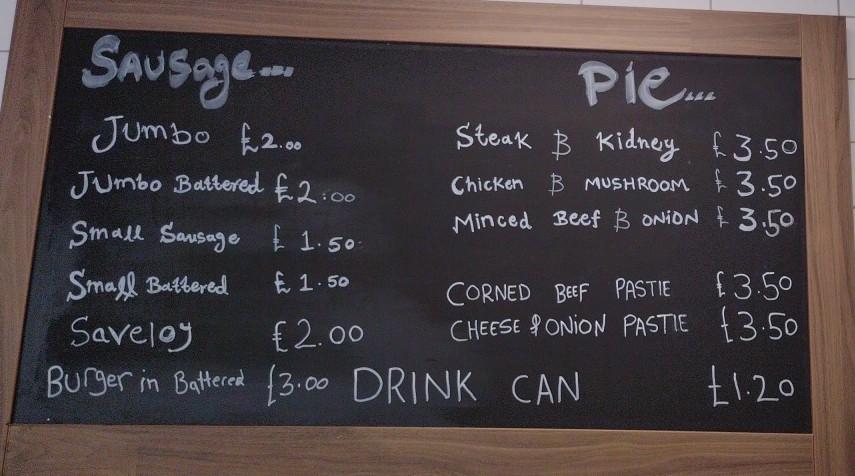 Sausage...
Jumbo £2.00
Jumbo Battered £2.00
Small Sausage £1.50
Small Battered £1.50
Saveloy £2.00
Burger in Battered £3.00
Pie...
Steak & Kidney £3.50
Chicken & MUSHROOM £3.50
Minced Beef & ONION £3.50
CORNED BEEF PASTIE £3.50
CHEESE & ONION PASTIE £3.50
DRINK CAN £1.20